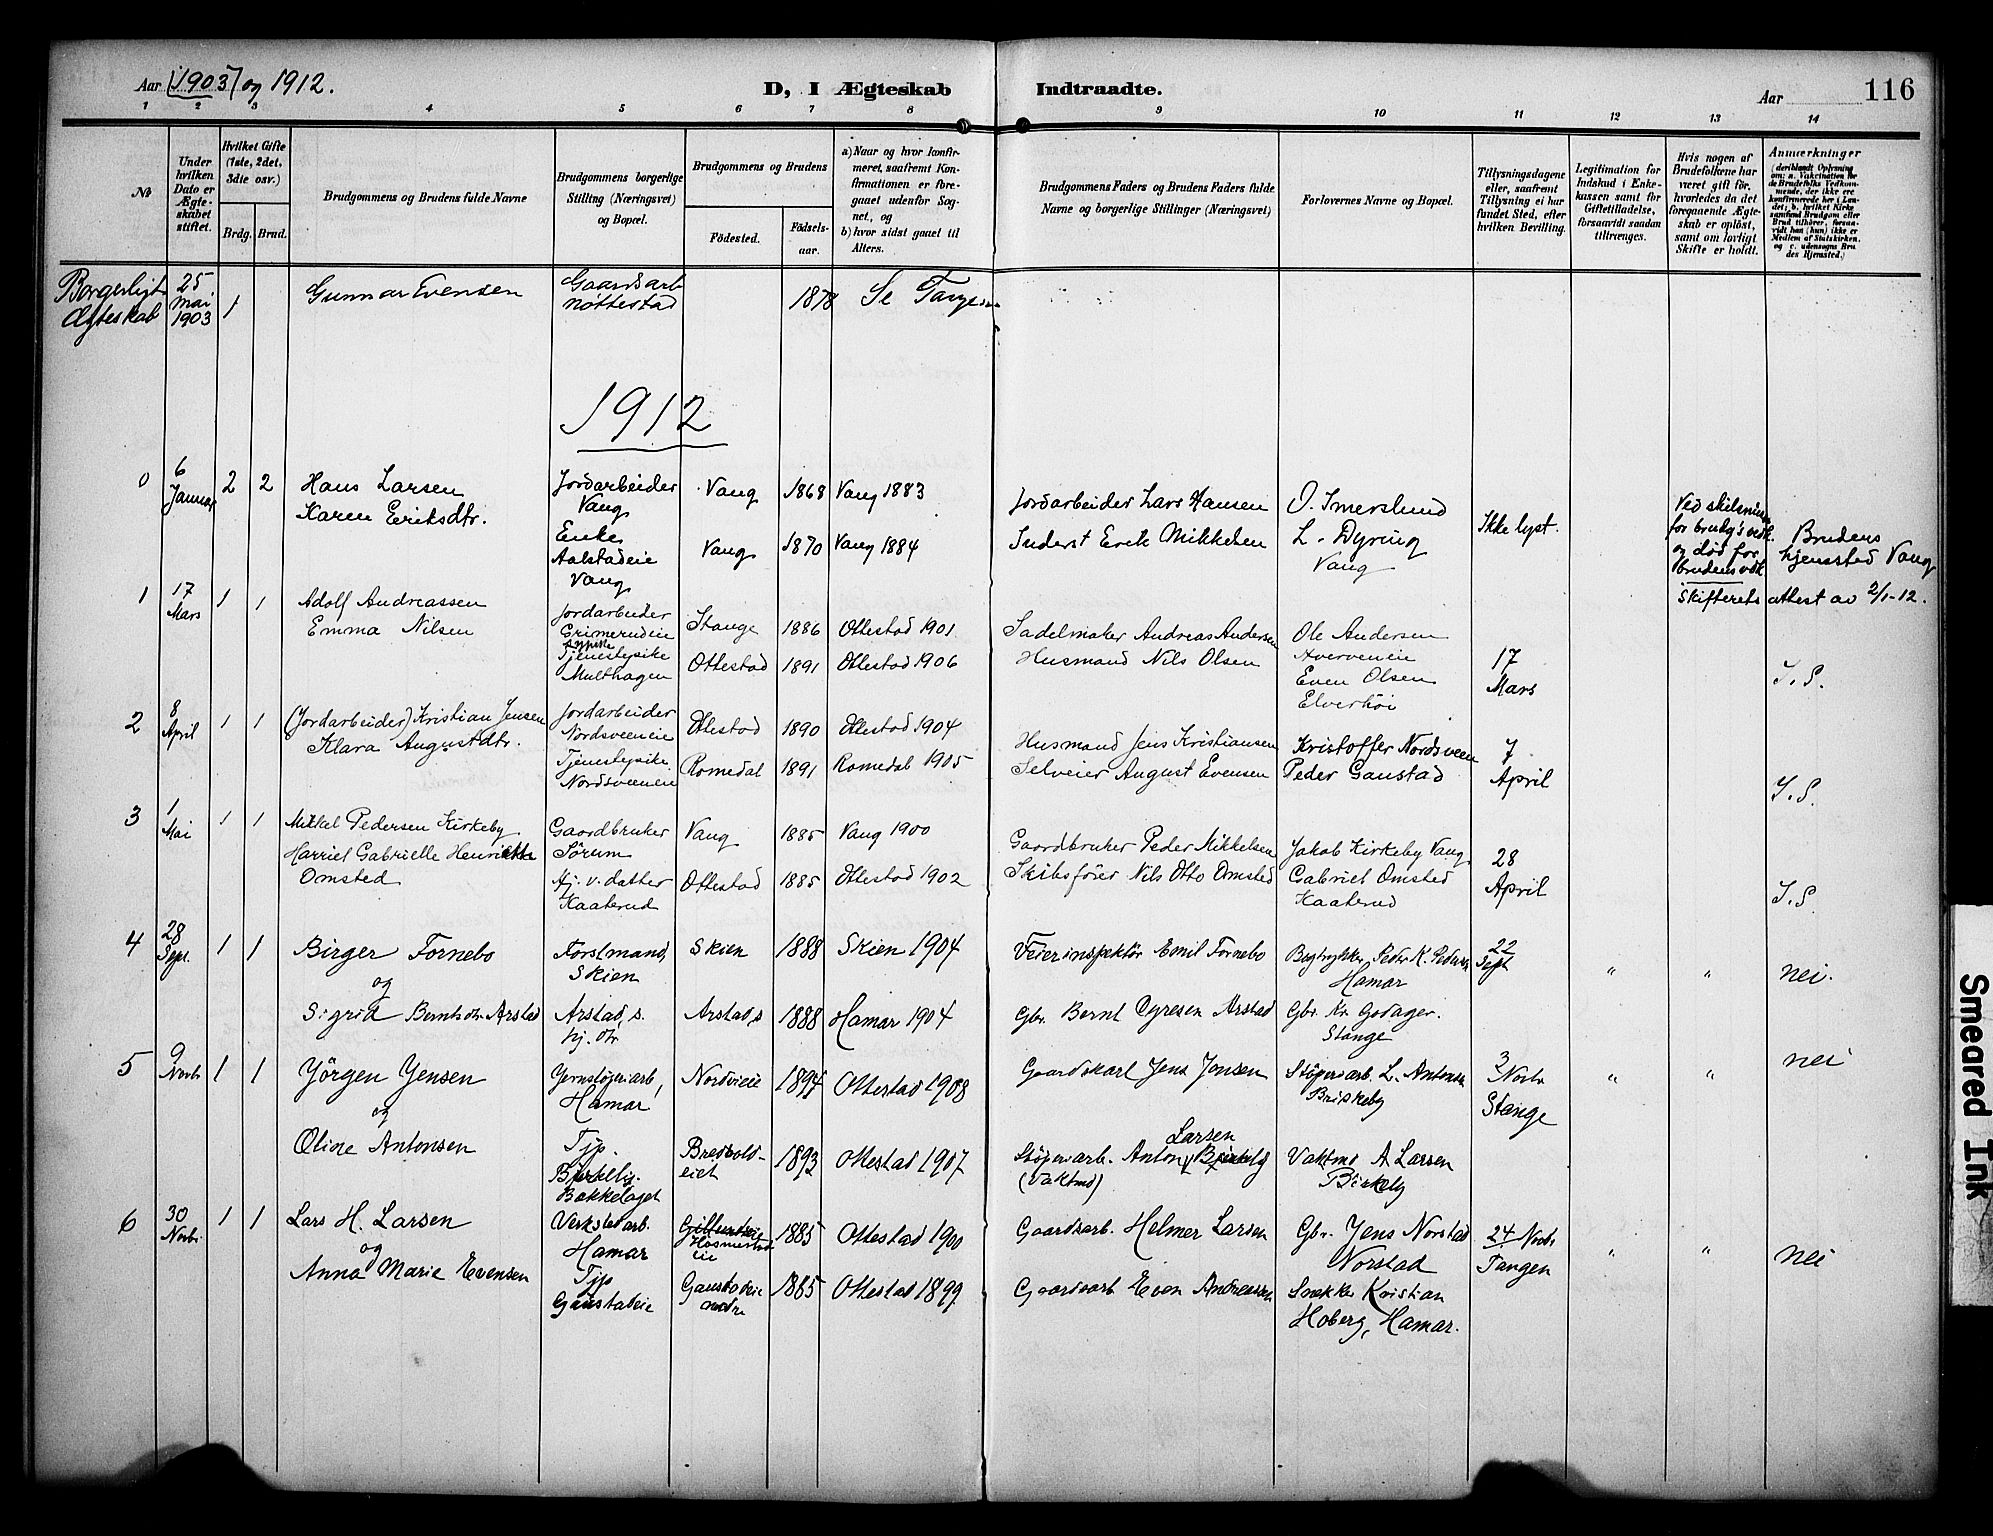 Aar (1903) og 1912.
D, I Ægteskab Indtraadte.
Aar 116
1 2 3 4 5 6 7 8 9 10 11 12 13 14
No
Under hvilken Dato er Ægteskabet stiftet.
Hvilket Gifte (1ste, 2det, 3die osv.)
Brdg. Brud.
Brudgommens og Brudens fulde Navne
Brudgommens borgerlige Stilling (Næringsvei) og Bopæl.
Brudgommens og Brudens
Fødested. Fødselsaar.
a) Naar og hvor konfirmeret, saafremt Konfirmationen er foregaaet udenfor Sognet, og
b) hvor sidst gaaet til Alters.
Brudgommens Faders og Brudens Faders fulde Navne og borgerlige Stillinger (Næringsvei)
Forlovernes Navne og Bopæl.
Tillysningsdagene eller, saafremt Tillysning ei har fundet Sted, efter hvilken Bevilling.
Legitimation for Indskud i Enkekassen samt for Giftetilladelse, forsaavidt saadan tiltrænges.
Hvis nogen af Brudefolkene har været gift før, hvorledes da det foregaaende Ægteskab er opløst, samt om lovligt Skifte er holdt.
Anmærkninger (deriblandt Oplysning om: a. Vakcination for de Brudefolks Vedkommende, der ikke ere konfirmerede her i Landet; b. hvilket Kirkesamfund Brudgom eller Brud tilhører, forsaavidt han (hun) ikke er Medlem af Statskirken, og c. udensogns Brudes Hjemsted.)
Borgerligt Ægteskab 25 Mai 1903 1 Gunnar Evensen Gaardsarb Nøttestad 1878 Se Tangen
1912
0 6 Januar 2 2 Hans Larsen Jordarbeider Vang Vang 1868 Vang 1883 Jordarbeider Lars Hansen O. Imerslund Ikke lyst.
Karen Eriksdtr. Enke Aalstadeie Vang Vang 1870 Vang 1884 Inderst Erik Mikkelsen L. Dyring Vang
Ved skilsmisse for brudg's vedk. og død for brudens vedk. Skifterets attest av 2/1-12.
Brudens hjemsted Vang
1 17 Mars 1 1 Adolf Andreassen Jordarbeider Grimerudeie Stange 1886 Ottestad 1901 Sadelmaker Andreas Andersen Ole Andersen
Emma Nilsen Tjenestepike Multhagen Ottestad 1891 Ottestad 1906 Husmand Nils Olsen Even Olsen Elverhöi 17 Mars I.S.
2 8 April 1 1 (Jordarbeider) Kristian Jensen Jordarbeider Nordsveeneie Ottestad 1890 Ottestad 1904 Husmand Jens Kristiansen Kristoffer Nordsveen 7 April
Klara Augustdtr. Tjenestepike Nordsveeneie Romedal 1891 Romedal 1905 Selveier August Evensen Peder Gaustad I.S.
3 1 Mai 1 1 Mikkel Pedersen Kirkeby Gaardbruker Sörum Vang 1885 Vang 1900 Gaardbruker Peder Mikkelsen Jakob Kirkeby Vang 28 April
Harriet Gabrielle Henriette Omsted Hj. v. datter Kaaterud Ottestad 1885 Ottestad 1902 Skibsförer Nils Otto Omsted Gabriel Omsted Kaaterud I.S.
4 28 Sept. 1 1 Birger Fornebo Forstmand, Skien Skien 1888 Skien 1904 Feierinspektör Emil Fornebo Bogtrykker Peder K. Pedersen Hamar 22 Sept " " nei.
og
Sigrid Berntsdtr. Arstad Arstad, s. hj. dtr Arstad, s 1888 Hamar 1904 Gbr. Bernt Syresen Arstad Gbr. Kr. Godager. Stange
5 9 Novbr 1 1 Jörgen Jensen Jernstøperiarb, Hamar Nordvieie 1894 Ottestad 1908 Gaardskarl Jens Jonsen Støperiarb. L. Antonsen Briskeby 3 Novbr Stange " " nei
og
Oline Antonsen Tjp. Bakkelaget Bredvoldeiet 1893 Ottestad 1907 Støperiarb. Anton Larsen (Vaktmd) Vaktmd A Larsen Birkeby
6 30 Novbr. 1 1 Lars H. Larsen Verkstedarb. Hamar Hosmestadeie 1885 Ottestad 1900 Gaardsarb. Helmer Larsen Gbr. Jens Norstad Norstad 24 Novbr Tangen " " nei
og
Anna Marie Evensen Tjp Gaustadeie Gaustadeie nedre 1885 Ottestad 1899 Gaardsarb Even Andreassen Snekker Kristian Hoberg, Hamar.
Smeared Ink